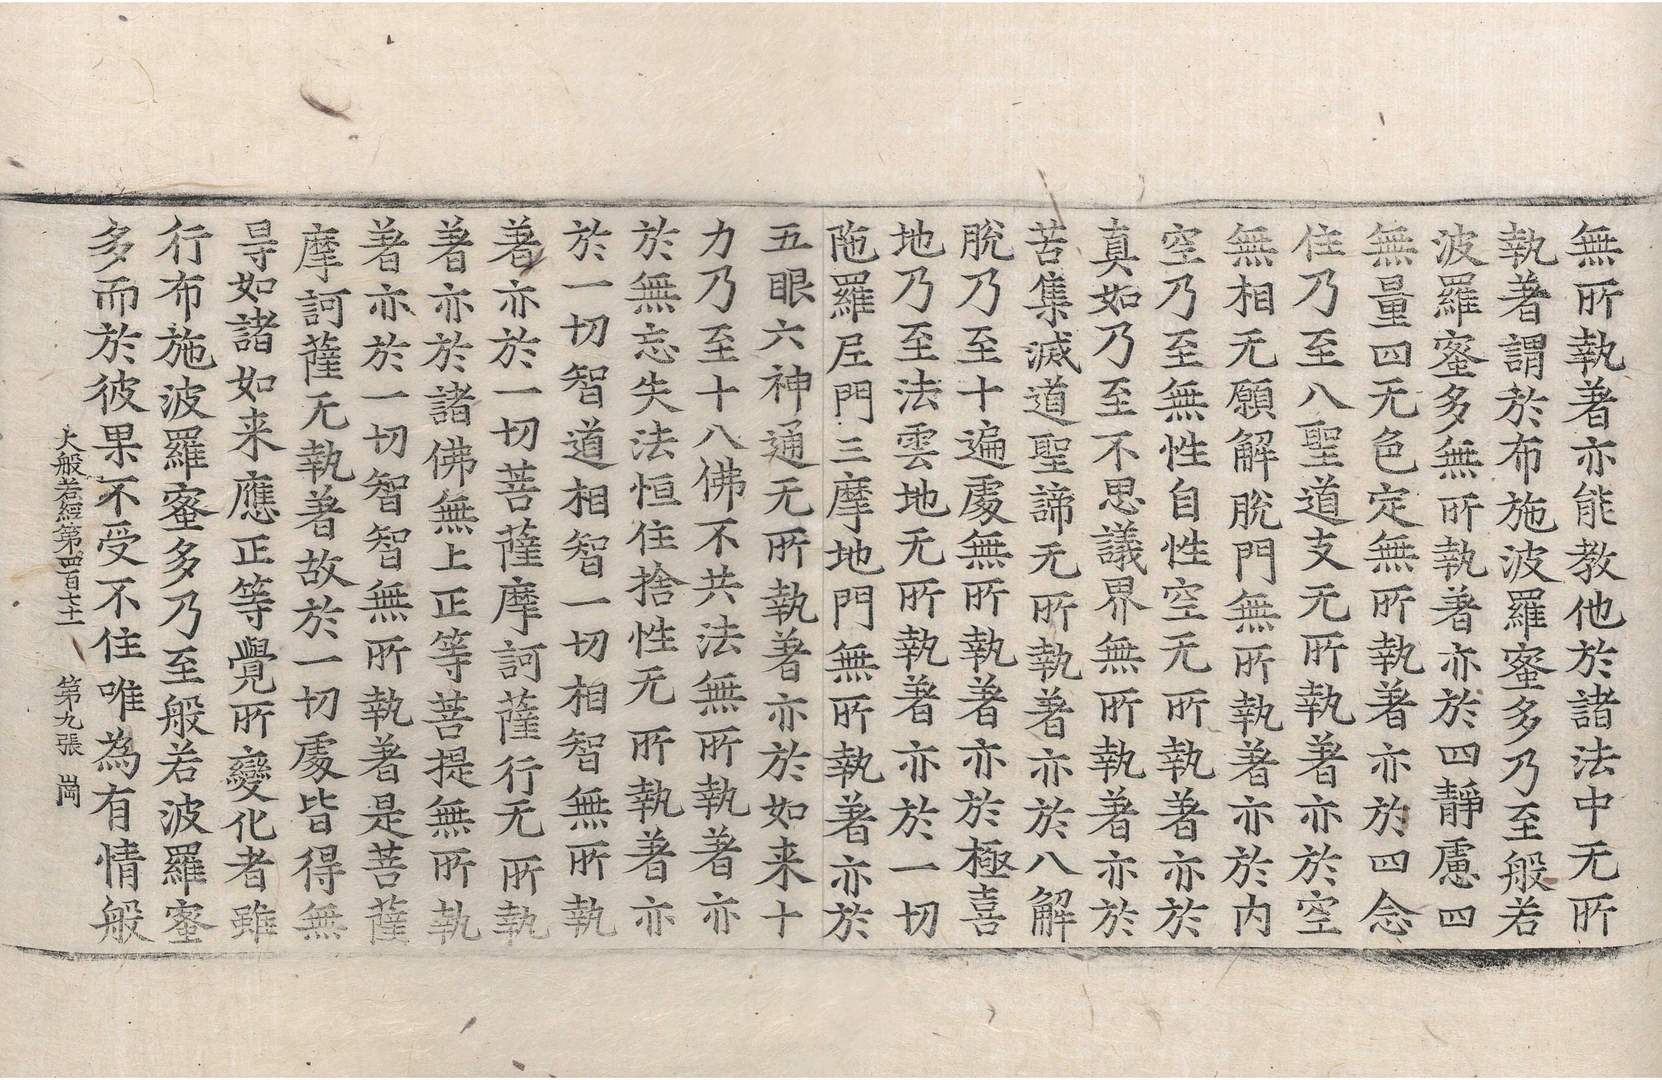 無所執著亦能教他於諸法中无所
執著謂於布施波羅蜜多乃至般若
波羅蜜多無所執著亦於四靜慮四
無量四无色定無所執著亦於四念
住乃至八聖道支无所執著亦於空
無相无願解脫門無所執著亦於內
空乃至無性自性空无所執著亦於
真如乃至不思議界無所執著亦於
苦集滅道聖諦无所執著亦於八解
脫乃至十遍處無所執著亦於極喜
地乃至法雲地无所執著亦於一切
陁羅尼門三摩地門無所執著亦於
五眼六神通无所執著亦於如来十
力乃至十八佛不共法無所執著亦
於無忘失法恒住捨性无所執著亦
於一切智道相智一切相智無所執
著亦於一切菩薩摩訶薩行无所執
著亦於諸佛無上正等菩提無所執
著亦於一切智智無所執著是菩薩
摩訶薩无執著故於一切處皆得無
㝵如諸如来應正等覺所變化者雖
行布施波羅蜜多乃至般若波羅蜜
多而於彼果不受不住唯為有情般
大般若經第四百七十二 第九張 崗